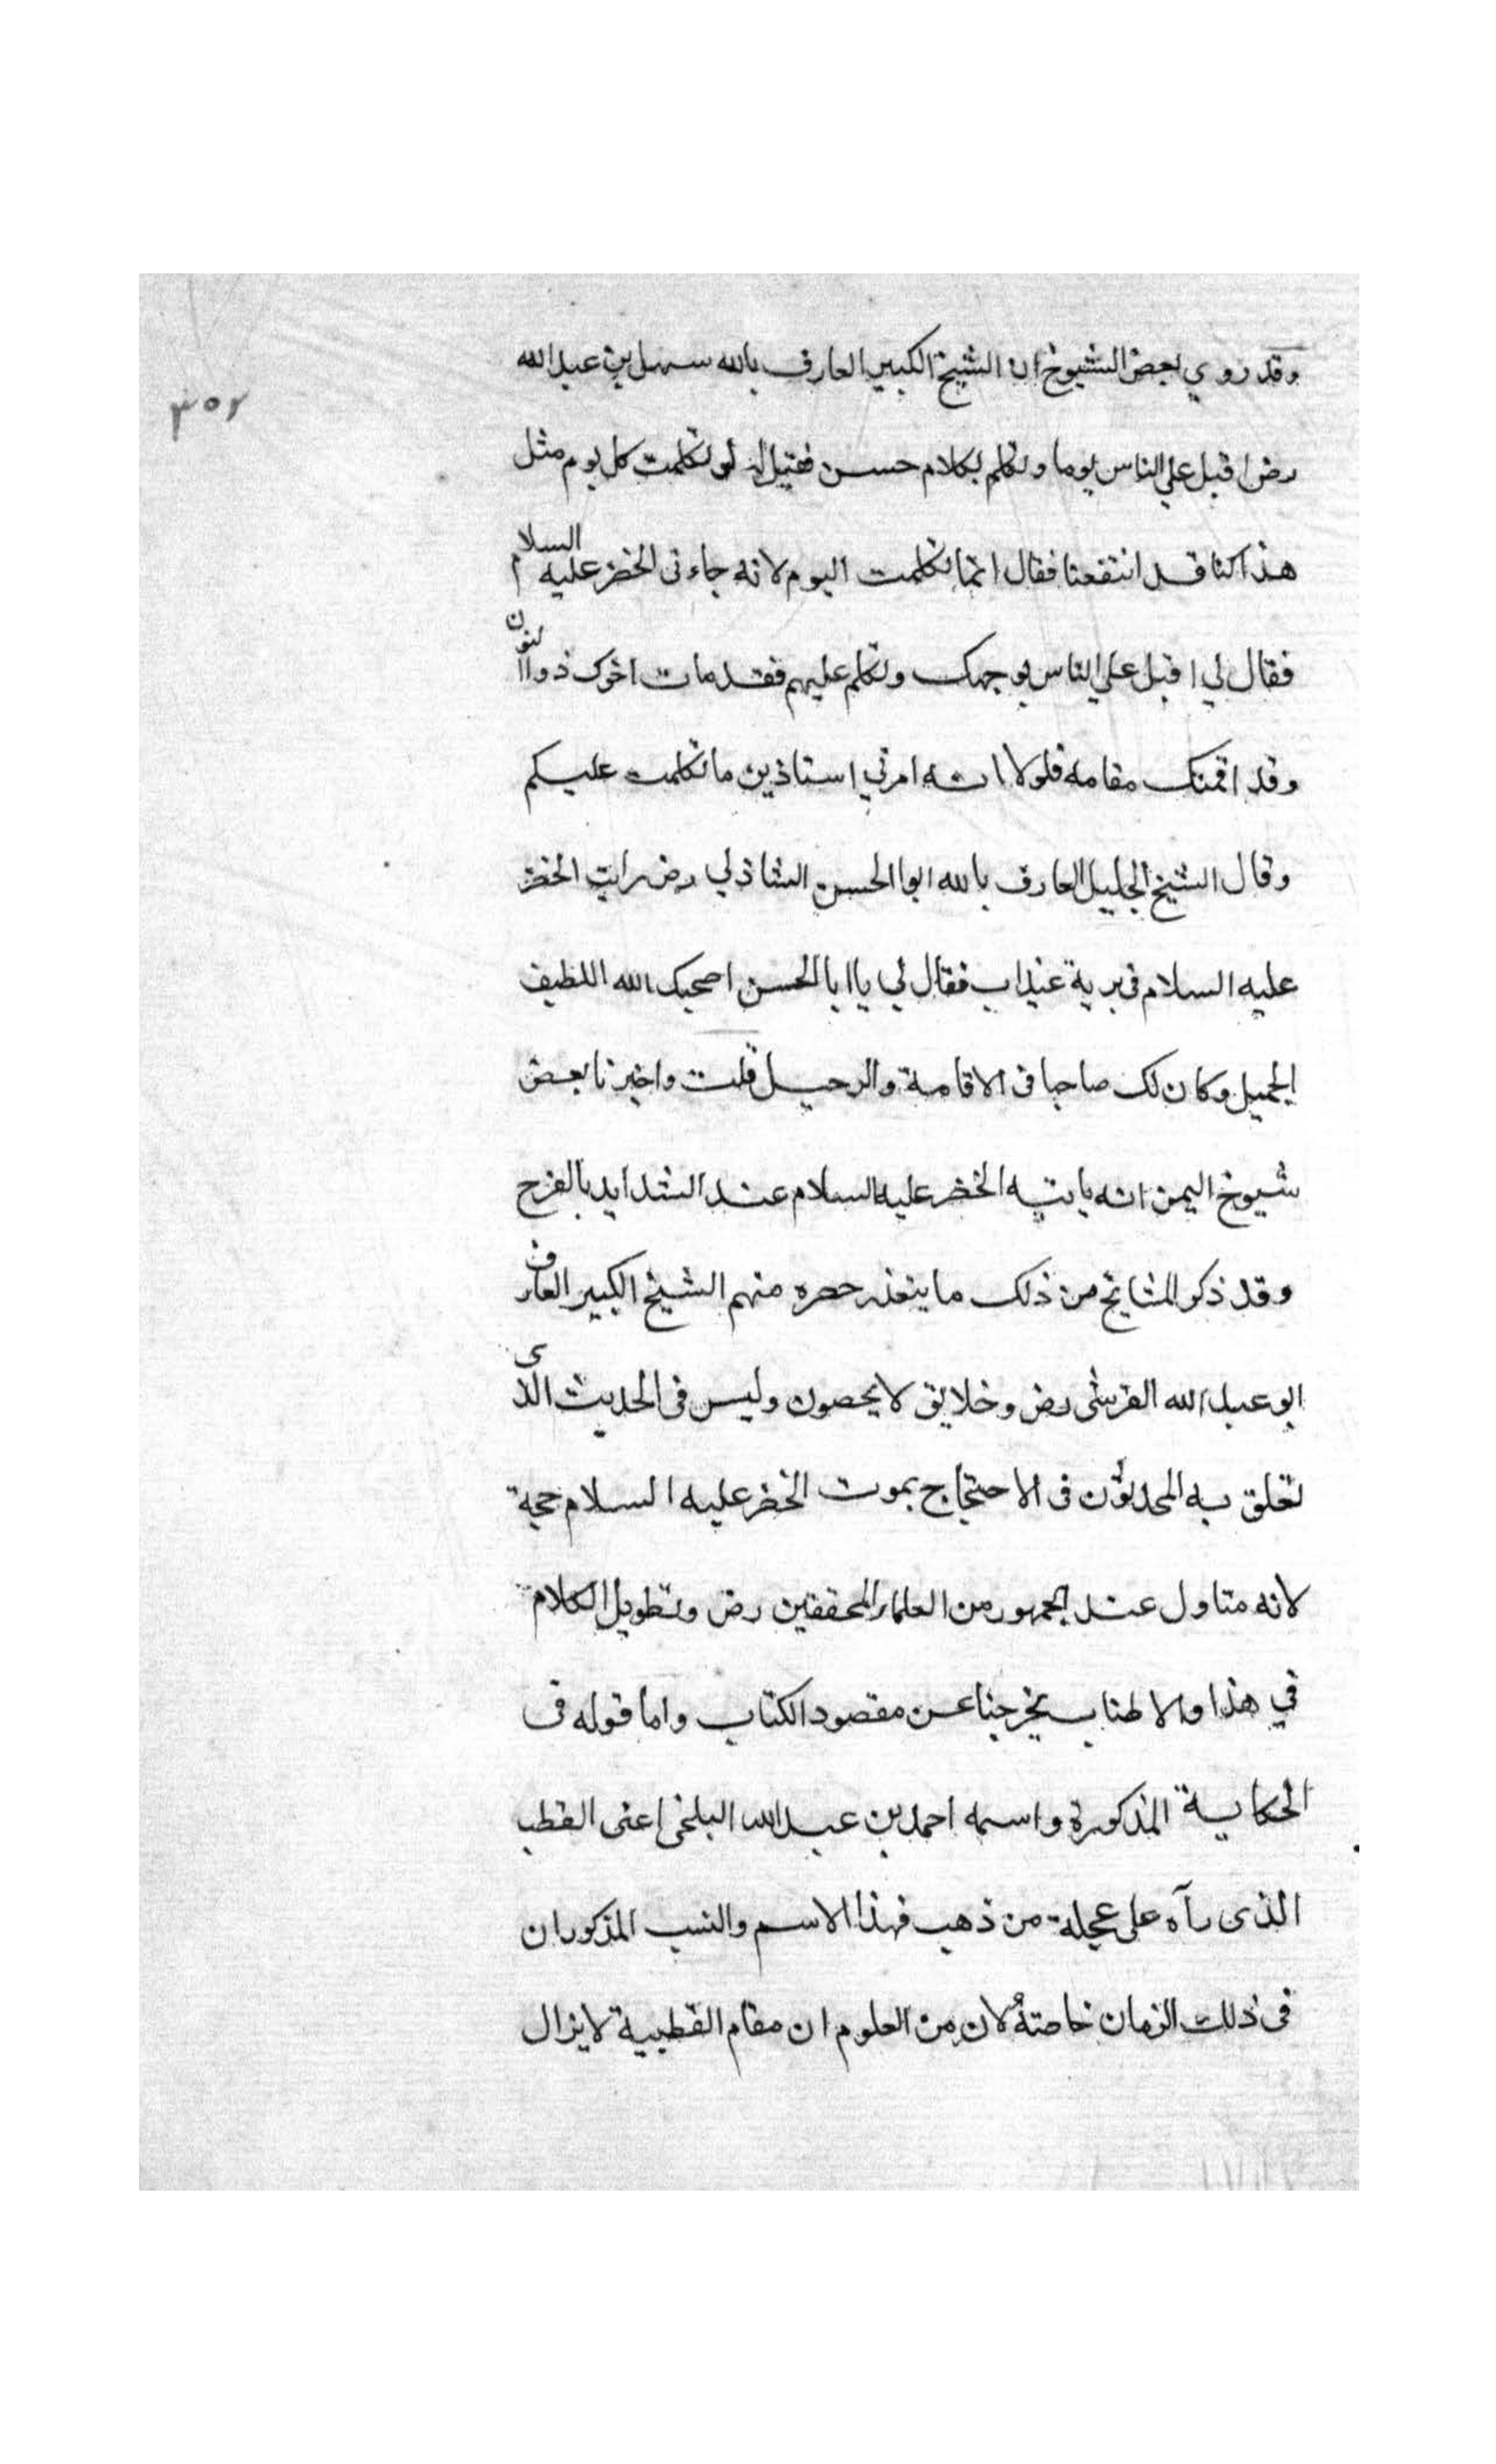 وقد روي بعض الشيوخ ان الشيخ الكبير العارف بالله سهل بن عبد الله
٣٥٢
رض اقبل علي الناس يوما وتكلم بكلام حسن فقيل له لو تكلمت كل يوم مثل
هذا كنا قد انتفعنا فقال انما تكلمت اليوم لانه جاءنى الخضر عليه السلام
فقال لي اقبل علي الناس بوجهك وتكلم عليهم فقد مات اخوك ذواالنون
وقد اقمتك مقامه فلولا انه امرني استاذين ما تكلمت عليكم
وقال الشيخ الجليل العارف بالله ابوا الحسن الشاذلي رض رايت الخضر
عليه السلام فى برية عيذاب فقال لي يا ابا الحسن اصحبك الله اللطيف
الجميل وكان لك صاحبا فى الاقامة والرحيل قلت واخبرنا بعض
شيوخ اليمن انه ياتيه الخضر عليه السلام عند الشدايد بالفرج
وقد ذكر المشايخ من ذلك ما يتعذر حصره منهم الشيخ الكبير العارف
ابو عبد الله القرشى رض وخلايق لا يحصون وليس فى الحديث الذى
تعلق به المحدثون فى الاحتجاج بموت الخضر عليه السلام حجة
لانه متاول عند الجمهور من العلماء المحققين رض وتطويل الكلام
في هذا والاطناب يخرجنا عن مقصود الكتاب واما قوله فى
الحكاية المذكورة واسمه احمد بن عبد الله البلخى اعنى القطب
الذى رآه على عجلة من ذهب فهذا الاسم والنسب المذكوران
فى ذلك الزمان خاصة لان من العلوم ان مقام القطبية لا يزال